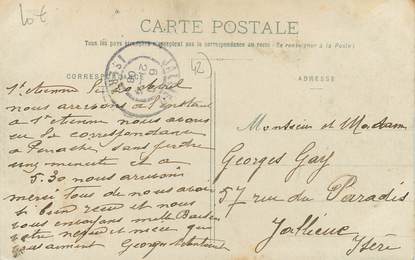 lot
CARTE POSTALE
Tous les pays étrangers n'acceptent pas la correspondance au recto (Se renseigner à la Poste)
CORRESPONDANCE
ADRESSE
42
JALLIEU
ISÈRE
St etienne le 20 Avril
nous arrivons à l'instant
a St etienne nous avons
eu la correspondance
a Perrache sans perdre
une minute et a
5.30 nous arrivons
merci tous de nous avoir
si bien recu et nous
vous envoyons mille Baisers
votre neveu et niece qui
vous aiment Georges
Monsieur et Madame
Georges Gay
57 rue du Paradis
Jallieue
Isère